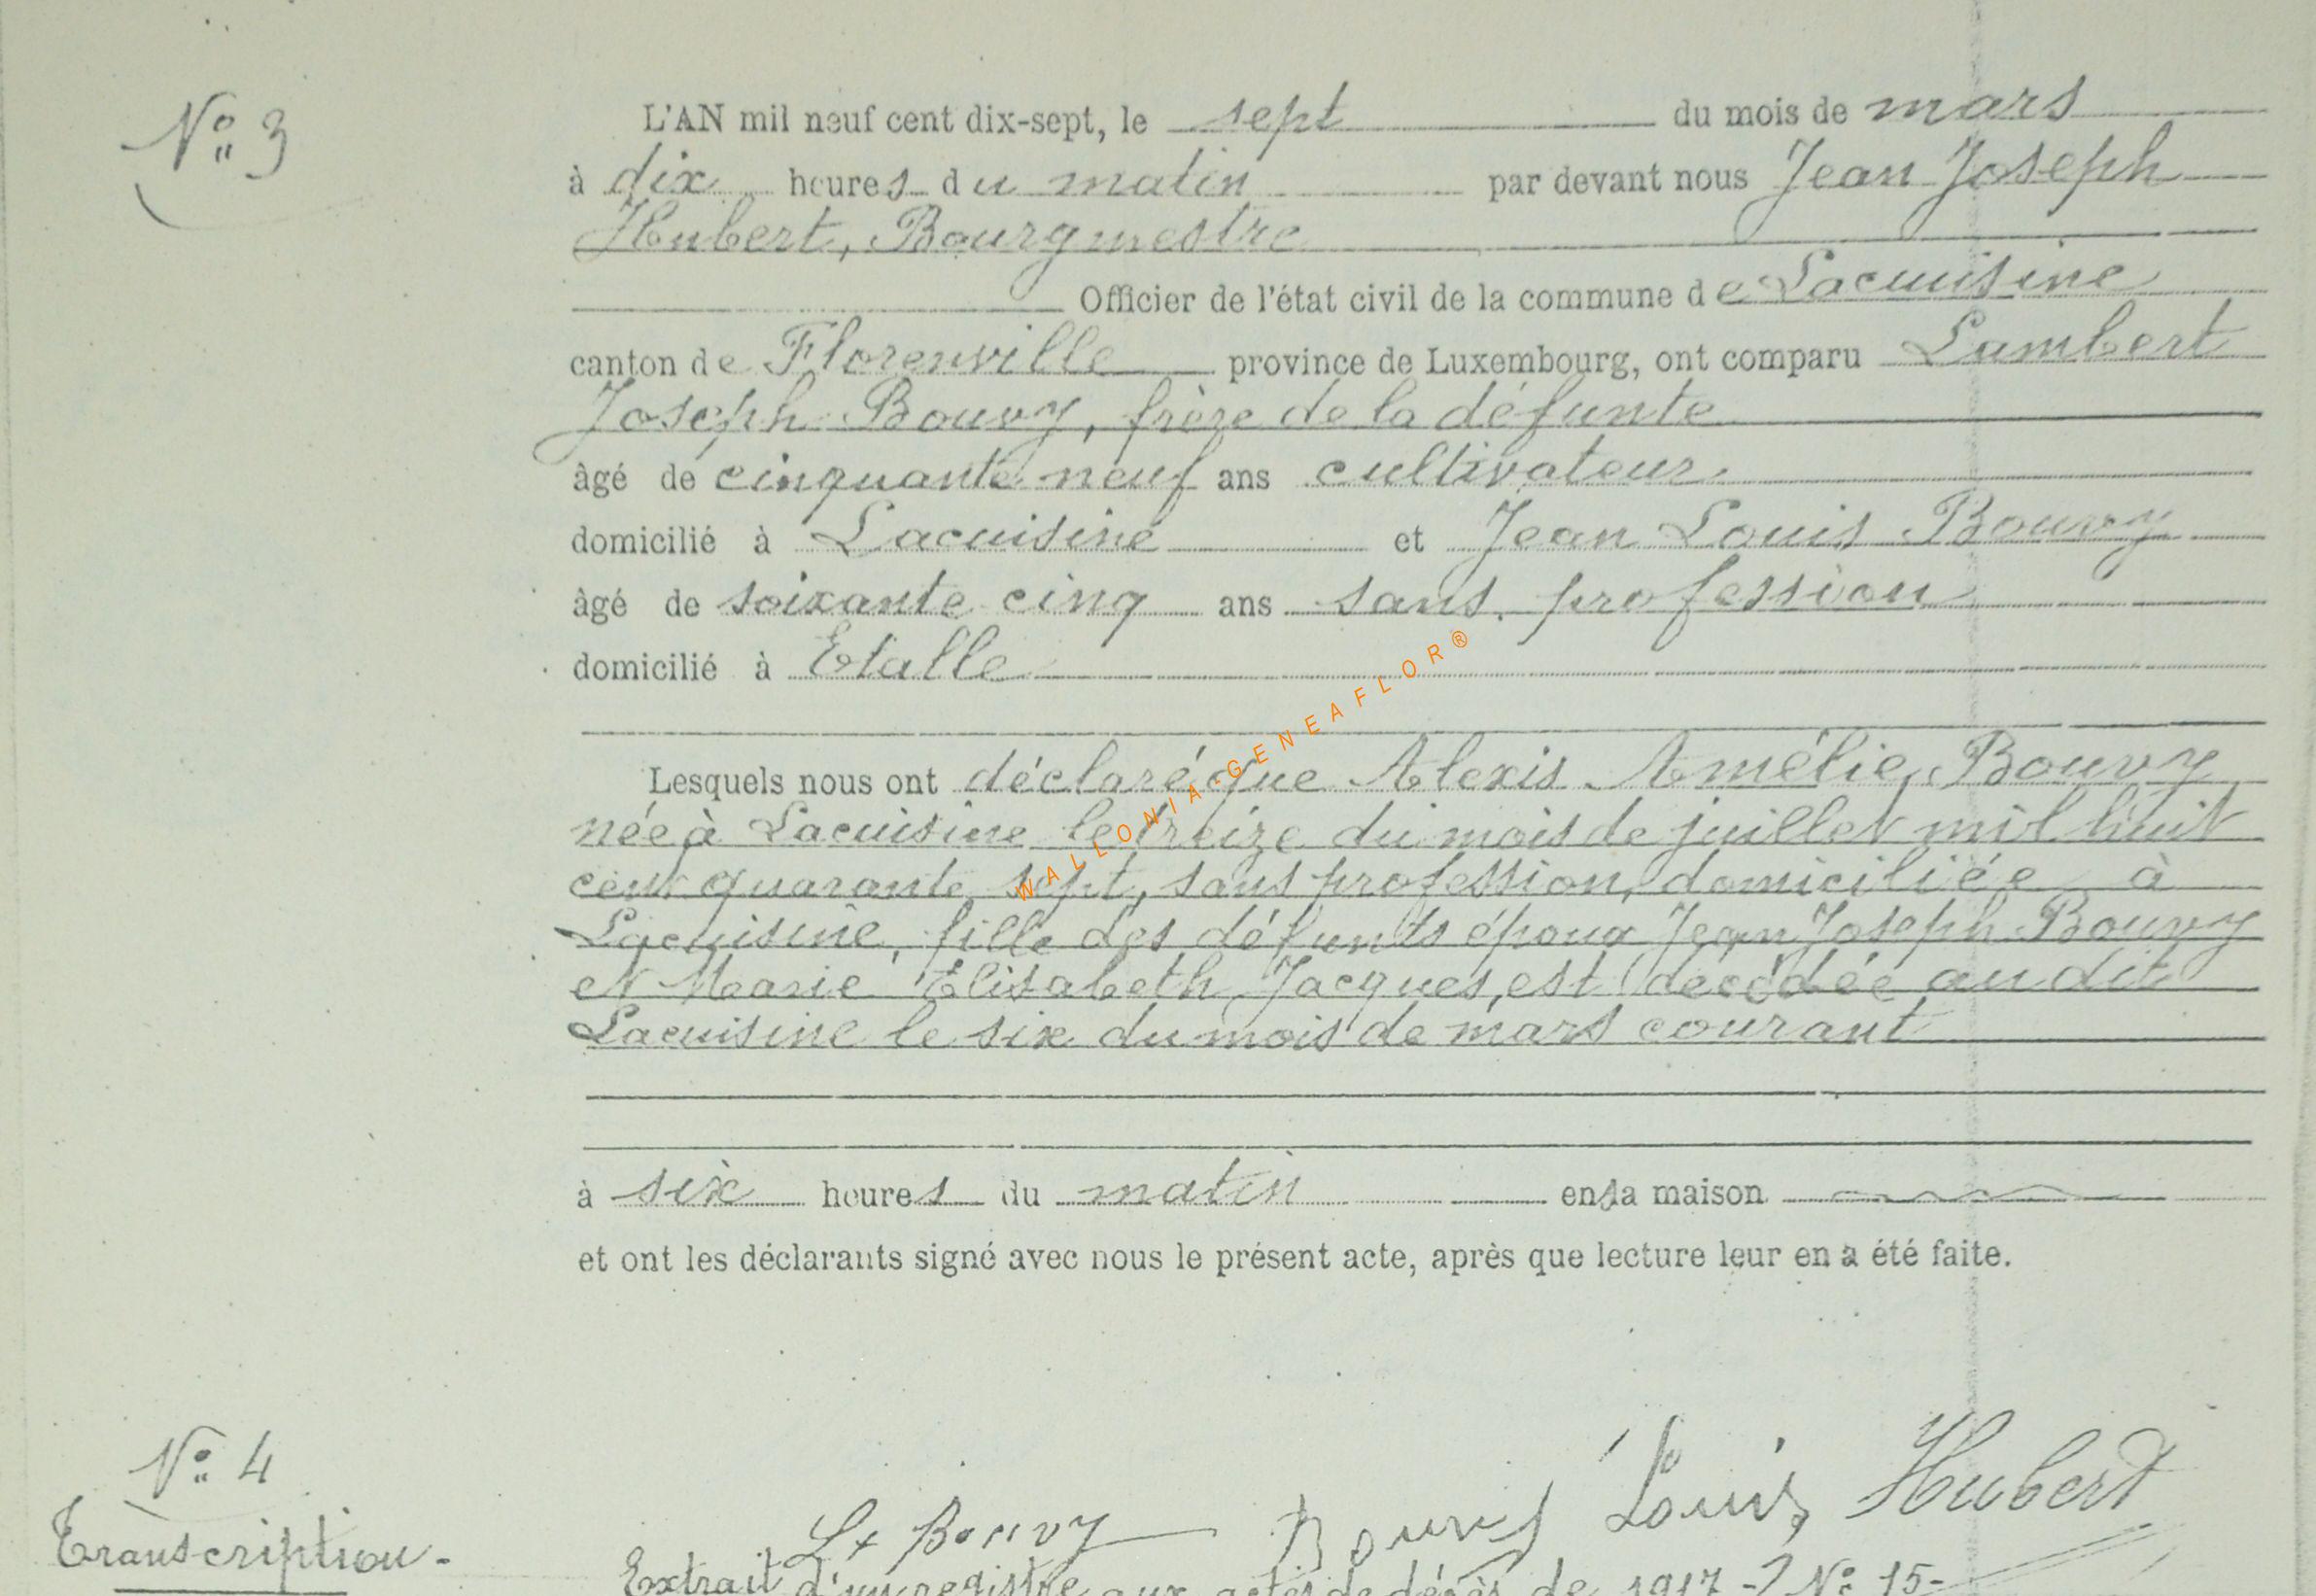 N° 3
L'AN mil neuf cent dix-sept, le sept du mois de mars
à dix heures du matin par devant nous Jean Joseph
Hubert, Bourgmestre
Officier de l'état civil de la commune de Lacuisine
canton de Florenville province de Luxembourg, ont comparu Lambert
Joseph Bouvy, frère de la défunte
âgé de cinquante neuf ans cultivateur
domicilié à Lacuisine et Jean Louis Bouvy
âgé de soixante cinq ans sans profession
domicilié à Etalle
Lesquels nous ont déclaré que Alexis Amélie Bouvy
née à Lacuisine le treize du mois de juillet mil huit
cent quarante sept, sans profession, domiciliée à
Lacuisine, fille des défunts époux Jean Joseph Bouvy
et Marie Elisabeth Jacques, est décédée au dit
Lacuisine le six du mois de mars courant
à six heures du matin en sa maison
et ont les déclarants signé avec nous le présent acte, après que lecture leur en a été faite.
Bouvy Louis Hubert
L Bouvy
N° 4
Transcription.
Extrait d'un registre aux actes de décès de 1917 - N° 15-
WALLONIA-GENEAFLOR®